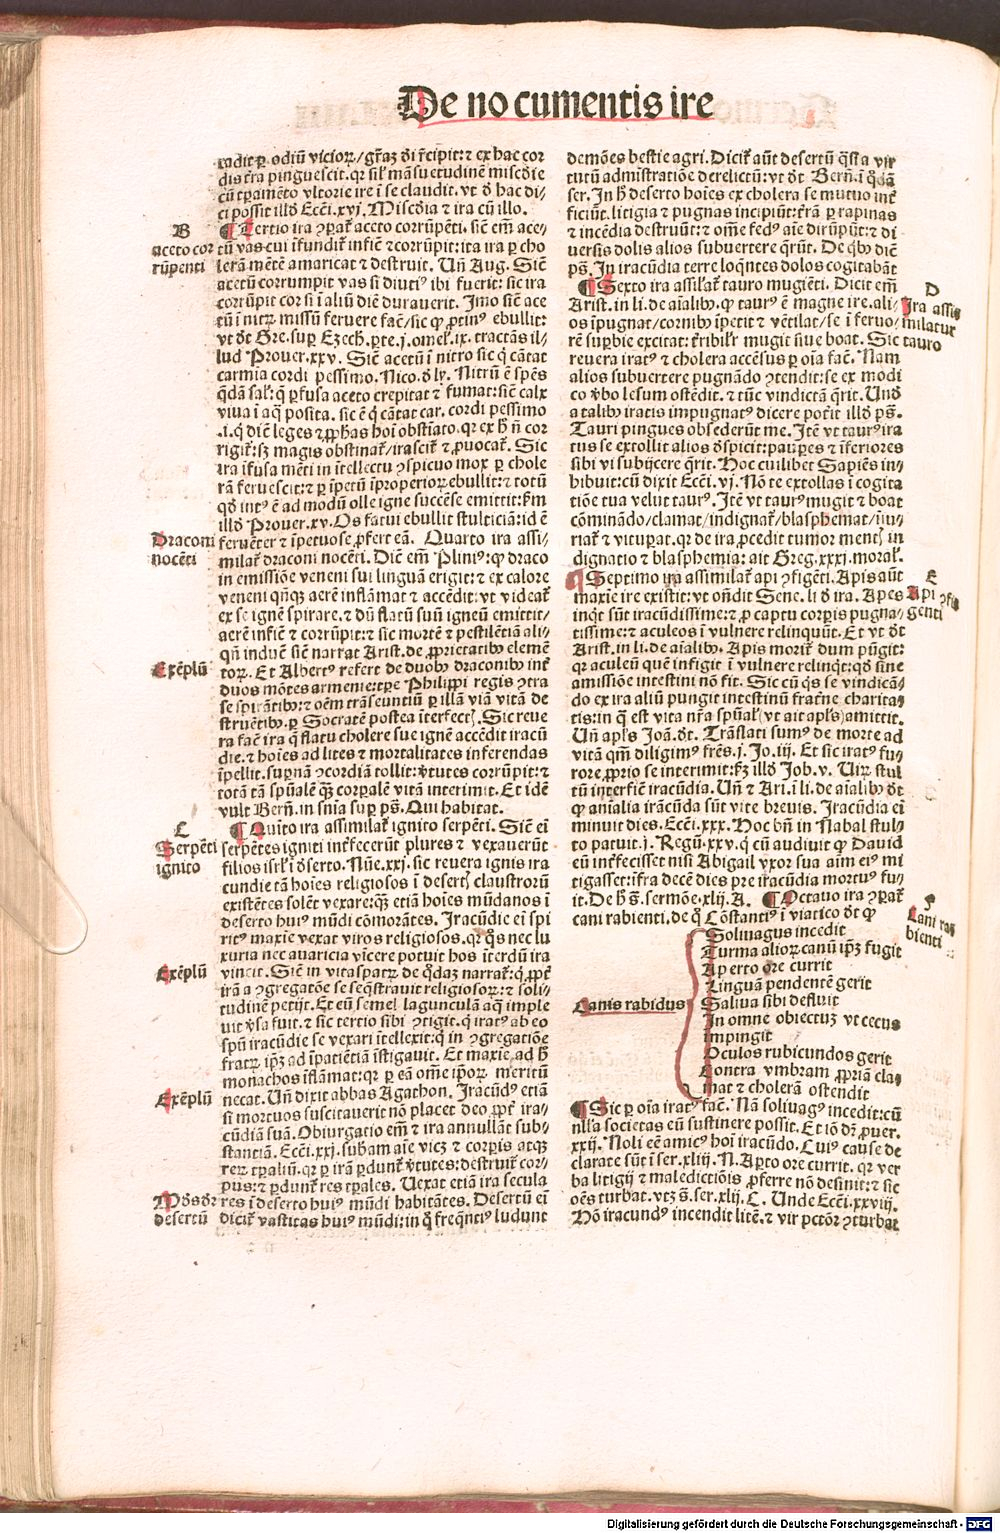 De nocumentis ire
radit ꝑ odiũ vicioꝝ/ gr̃az dei r̃cipit: ⁊ ex hac cor
dis tr̃a pinguescit. qꝛ sil' mãsuetudinẽ miscd̃ie
cũ tꝑamẽto vltorie ire ĩ se claudit. vt ð hac di-
ci possit illð Ecc̃i. xvj. Miscd̃ia ⁊ ira cũ illo.
B
aceto cor
rũpenti
¶ Tertio ira ꝯparat̃ aceto corrũpẽti. sic̃ em̃ ace-
tũ vas cui ĩfundit̃ infic̃ ⁊ corrũpit: ita ira ꝑ cho
lerã mẽtẽ amaricat ⁊ destruit. Vñ Aug. Sic̃
acetũ corrumpit vas si diutiꝰ ibi fuerit: sic ira
corrũpit cor si ĩ aliũ diẽ durauerit. Imo sic̃ ace
tũ ĩ nitꝝ missũ feruere fac̃/ sic ꝙ ꝓtinꝰ ebullit:
vt ð̃t Gre. suꝑ Ezech. ꝑte. j. omel'. ix. tractãs il-
lud Prouer. xxv. Sic̃ acetũ ĩ nitro sic q̃ cãtat
carmia cordi pessimo. Nico. ð ly. Nitrũ ẽ spẽs
q̃dã sal': q̃ ꝑfusa aceto crepitat ⁊ fumat: sic̃ calx
viua ĩ aq̃ posita. sic ẽ q̃ cãtat car. cordi pessimo
.i. q̃ dic̃ leges ⁊ ꝓphas hoĩ obstĩato. qꝛ ex h̃ ñ cor
rigit̃: sꝫ magis obstinat̃/ irascit̃ ⁊ ꝓuocat̃. Sic
ira ĩfusa mẽti in ĩtellectu ꝯspicuo mox ꝑ chole
rã feruescit: ⁊ ꝑ ĩpetũ ĩproperioꝝ ebullit: ⁊ totũ
qð intꝰ ẽ ad modũ olle igne succẽse emittit: ẜm
illð Prouer. xv. Os fatui ebullit stulticiã: id ẽ
Draconi
nocẽti
feruẽter ⁊ ĩpetuose ꝓfert eã. Quarto ira assi-
milat̃ draconi nocẽti. Dic̃ em̃ Pliniꝰ: ꝙ draco
in emissiõe veneni sui linguã erigit: ⁊ ex calore
veneni qñqꝫ aerẽ inflãmat ⁊ accẽdit: vt videat̃
ex se ignẽ spirare. ⁊ dũ flatũ suũ igneũ emittit/
aerẽ infic̃ ⁊ corrũpit: ⁊ sic mortẽ ⁊ pestilẽtiã ali-
qñ induc̃ sic̃ narrat Arist. de ꝓprietatibꝰ elemẽ
Exẽplũ
toꝝ. Et Albertꝰ refert de duobꝰ draconibꝰ int̃
duos mõtes armenie: tꝑe Philippi regis ꝯtra
se spirãtibꝰ: ⁊ oẽm trãseuntiũ ꝑ illã viã vitã de
struẽtibꝰ. ꝑ Socratẽ postea ĩterfect̃. Sic reue
ra fac̃ ira q̃ flatu cholere sue ignẽ accẽdit iracũ
die. ⁊ hoĩes ad lites ⁊ mortalitates inferendas
ĩpellit. supnã ꝯcordiã tollit: ṽtutes corrũpit: ⁊
totã tã spũalẽ qꝫ corꝑalẽ vitã interimit. Et idẽ
vult Berñ. in sñia suꝑ ps̃. Qui habitat.
C
Serpẽti
ignito
¶ Quĩto ira assimilat̃ ignito serpẽti. Sic̃ eĩ
serpẽtes igniti intẽfecerũt plures ⁊ vexauerũt
filios isrl' ĩ ðserto. Nũe. xxj. sic reuera ignis ira
cundie tã hoĩes religiosos ĩ desert̃ claustrorũ
existẽtes solẽt vexare: qꝫ etiã hoĩes mũdanos ĩ
deserto huiꝰ mũdi cõmorãtes. Iracũdie eĩ spi
ritꝰ maxĩe vexat viros religiosos. qꝛ q̃s nec lu
xuria nec auaricia vĩcere potuit hos ĩterdũ ira
Exẽplũ
vincit. Sic̃ in vitaspatꝝ de q̃daʒ narrat̃: q̃ ꝓpt̃
irã a ꝯgregatõe se seq̃strauit religiosoꝝ: ⁊ soli-
tudinẽ petijt. Et eũ semel lagunculã aq̃ imple
uit ṽsa fuit. ⁊ sic tertio sibi ꝯtigit. q̃ iratꝰ ab eo
spũ iracũdie se vexari ĩtellexit: q̃ in ꝯgregatiõe
fratꝝ ip̃ʒ ad ĩpatiẽtiã ĩstigauit. Et maxĩe ad h̃
monachos ĩflãmat: qꝛ ꝑ eã om̃e ip̃oꝝ meritũ
Exẽplũ
neccat. Uñ dixit abbas Agathon. Iracũdꝰ etiã
si mortuos suscitauerit nõ placet deo ꝓpt̃ ira-
cũdiã suã. Obiurgatio em̃ ⁊ ira annullãt sub-
stantiã. Ecc̃i. xxj. subam aĩe vicʒ ⁊ corꝑis atqꝫ
reꝝ tꝑaliũ. qꝛ ꝑ irã ꝑdunt̃ ṽtutes: destruit̃ cor-
pus: ⁊ ꝑdunt̃ res tꝑales. Uexat etiã ira secula
desertũ
res ĩ deserto huiꝰ mũdi habitãtes. Desertũ eĩ
dicit̃ vastitas huiꝰ mũdi: in q̃ freq̃ntiꝰ ludunt
demões bestie agri. Dicit̃ aũt desertũ q̃si a vir
tutũ admĩstratiõe derelictũ: vt ð̃t Berñ. ĩ q̃dã
ser. In h̃ deserto hoĩes ex cholera se mutuo int̃
ficiũt. litigia ⁊ pugnas incipiũt: tr̃ã ꝑ rapinas
⁊ incẽdia destruũt: ⁊ om̃e fedꝰ aĩe dirũpũt: ⁊ di
uersis dolis alios subuertere q̃rũt. De q̃bꝰ dic̃
ps̃. In iracũdia terre loq̃ntes dolos cogitabãt
D
Ira assi
milatur
tauro
¶ Sexto ira assil'at̃ tauro mugiẽti. Dicit em̃
Arist. in li. de aĩalibꝰ. ꝙ taurꝰ ẽ magne ire. ali-
os ĩpugnat/ cornibꝰ ĩpetit ⁊ vẽtilat/ se ĩ feruo-
rẽ supbie excitat: t̃ribil'r mugit siue boat. Sic
reuera iratꝰ ⁊ cholera accẽsus ꝑ oĩa fac̃. Nam
alios subuertere pugnãdo ꝯtendit: se ex modi
co ṽbo lesum ostẽdit. ⁊ tũc vindictã q̃rit. Unð
a talibꝰ iratis impugnatꝰ dicere pot̃it illð ps̃.
Tauri pingues obsederũt me. Itẽ vt taurꝰ ira
tus se extollit alios ðspicit: pauꝑes ⁊ ĩferiores
sibi vi subijcere q̃rit. Hoc cuilibet Sapiẽs in-
hibuit: cũ dixit Ecc̃i. vj. Nõ te extollas ĩ cogita
tiõe tua velut taurꝰ. Itẽ vt taurꝰ mugit ⁊ boat
cõminãdo/ clamat/ indignat̃/ blasphemat/ iniu-
riat̃ ⁊ vituꝑat. qꝛ de ira ꝓcedit tumor ment̃ in
dignatio ⁊ blasphemia: ait Greg. xxxj. moral'.
E
Api ꝯfi
genti
¶ Septimo ira assimilat̃ api ꝯfigẽti. Apis aũt
maxĩe ire existit: vt oñdit Sene. li ð ira. Apes
inq̃t sũt iracũdissime: ⁊ ꝓ captu corꝑis pugna-
tissime: ⁊ aculeos ĩ vulnere relinquũt. Et vt ð̃t
Arist. in li. de aĩalibꝰ. Apis morit̃ dum pũgit:
qꝛ aculeũ quẽ infigit ĩ vulnere relinq̃t: qð sine
amissiõe intestini nõ fit. Sic cũ q̃s se vindicã-
do ex ira aliũ pungit intestinũ fratñe charita-
tis: in q̃ est vita nr̃a spũal' (vt ait apl's) amittit.
Uñ apl's Joã. ð̃t. Trãslati sumꝰ de morte ad
vitã qm̃ diligimꝰ frẽs. j. Jo. iij. Et sic iratꝰ fu-
rore ꝓprio se interimit: ẜʒ illð Job. v. Uiꝝ stul
tũ intẽrfic̃ iracũdia. Uñ ⁊ Ari. ĩ li. de aĩalibꝰ ð̃t
ꝙ aĩnalia irãcũda sũt vite breuis. Iracũdia eĩ
minuit dies. Ecc̃i. xxx. Hoc bñ in Nabal stul-
to patuit. j. Regũ. xxv. q̃ cũ audiuit ꝙ Dauid
eũ intẽrfecisset nisi Abigail vxor sua aĩm eiꝰ mi
tigasset: ĩfra decẽ dies pre iracũdia mortuꝰ fu-
it. De h̃ s̃. sermõe. xlij. A. ¶ Octauo ira ꝯparat̃
F
Cani ra
bienti
cani rabienti. de q̃ Cõstantiꝰ ĩ viatico ð̃t ꝙ
Canis rabidus
Soliuagus incedit
Turma alioꝝ canũ ip̃ʒ fugit
Aperto ore currit
Linguã pendentẽ gerit
Saliua sibi defluit
In omne obiectuʒ vt cecus
impingit
Oculos rubicundos gerit
Contra vmbram ꝓpriã cla-
mat ⁊ cholerã ostendit
¶ Sic ꝑ oĩa iratꝰ fac̃. Nã soliuagꝰ incedit: cũ
nll'a societas eũ sustinere possit. Et iõ dr̃ ꝓuer.
xxij. Noli eẽ amicꝰ hoĩ iracũdo. Cuiꝰ cause de
clarate sũt ĩ ser. xliij. N. Aꝑto ore currit. qꝛ ver
ba litigij ⁊ maledictiõis ꝓferre nõ desinit: ⁊ sic
oẽs turbat. vtʒ s̃. ser. xlij. C. Unde Ecc̃i. xxviij.
Hõ iracundꝰ incendit litẽ. ⁊ vir pctõr ꝯturbat
Digitalisierung gefördert durch die Deutsche Forschungsgemeinschaft - DFG